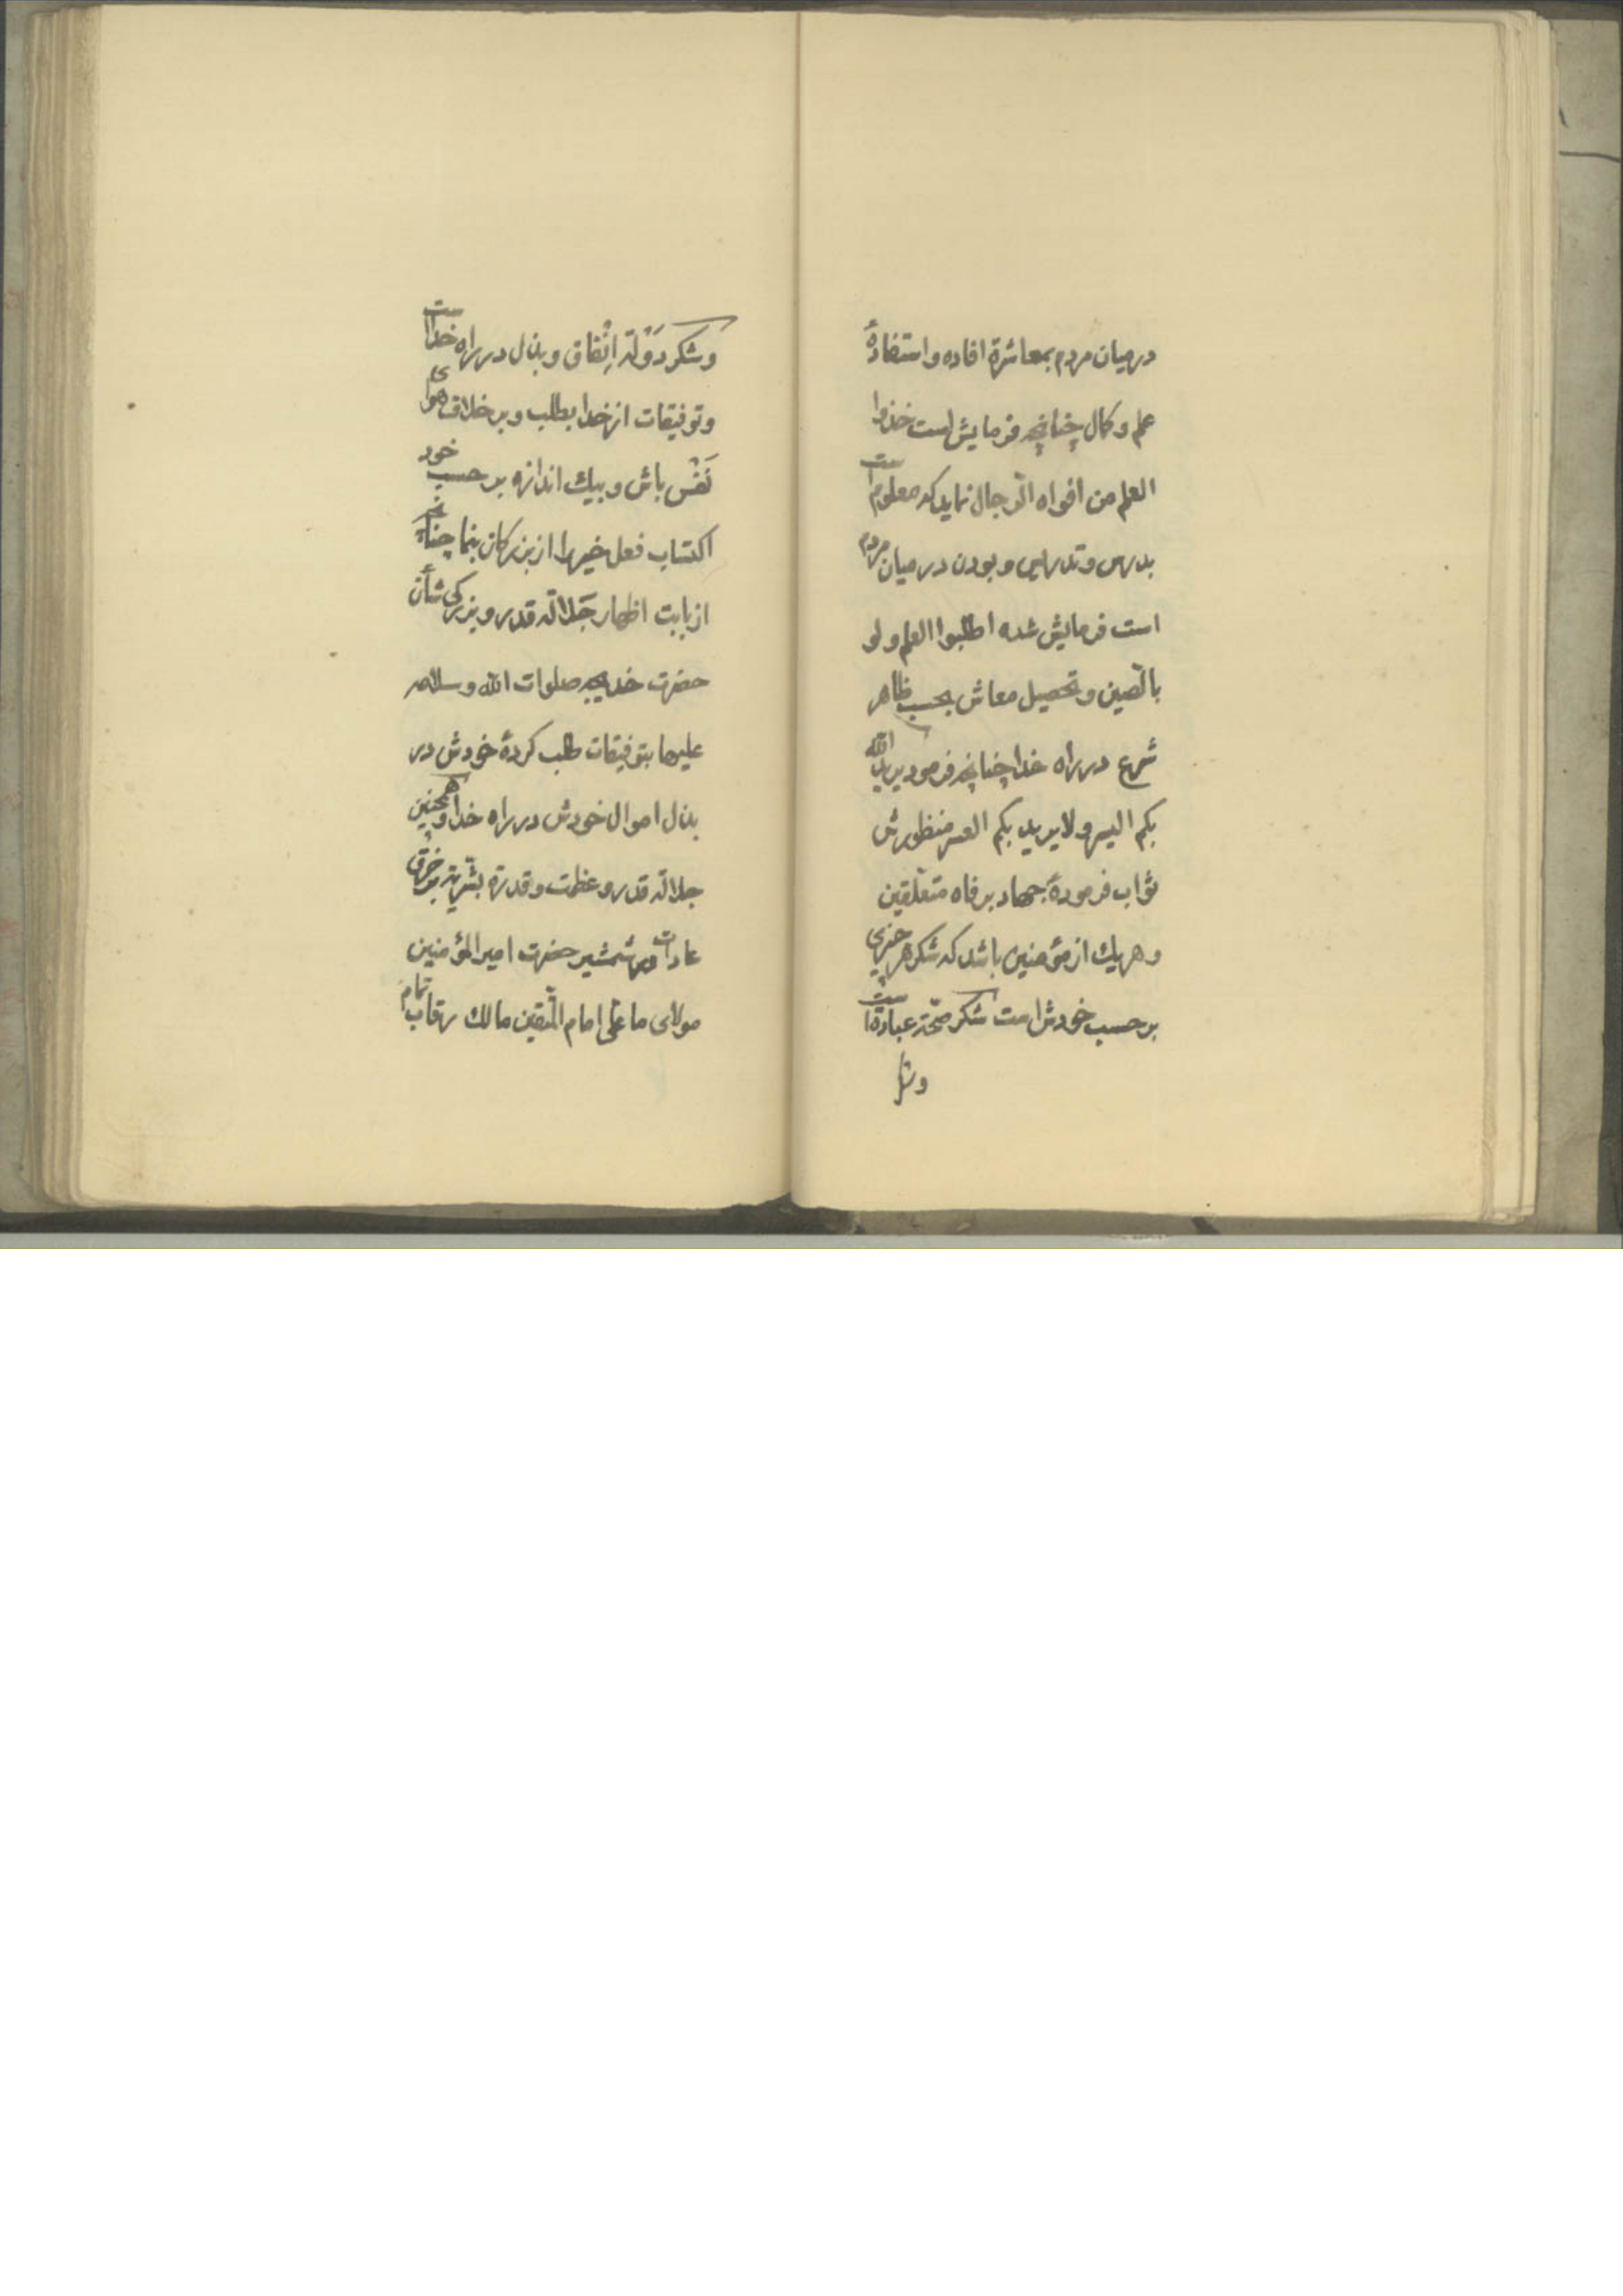 در میان مردم بمعاشرة افاده و استفادهٔ
علم و کمال چنانچه فرمایش است خذوا
العلم من افواه الرّجال نماید که معلوم است
بدرس و تدریس و بودن در میان مردم
است فرمایش شده اطلبوا العلم ولو
بالصین و تحصیل معاش بحسب ظاهر
شرع در راه خدا چنانچه فرمود یرید الله
بکم الیسر ولا یرید بکم العسر منظورش
ثواب فرمودهٔ جهاد برفاه متعلّقین
و هر یک از مؤمنین باشد که شکر هر چیزی
بر حسب خودش است شکر صحّة عبادة است
وشکر
وشکر دَوْلة اِنْفاق و بذل در راه خدا است
و توفیقات از خدا بطلب و بر خلاف هوای
نَفْس باش و بیک اندازه بر حسب خود
اکتساب فعل خیر را از بزرکان بنما چنانچه
از بابت اظهار جَلالة قدر و بزرکی شأن
حضرت خدیجه صلوات الله و سلامه
علیها بتوفیقات طلب کردهٔ خودش در
بذل اموال خودش در راه خدا و همچنین
جلالة قدر و عظمت و قدرة بشریة بر خرق
عادات و شمشیر حضرت امیر المؤمنین
مولای ما علی امام المتّقین مالک رقاب تمام